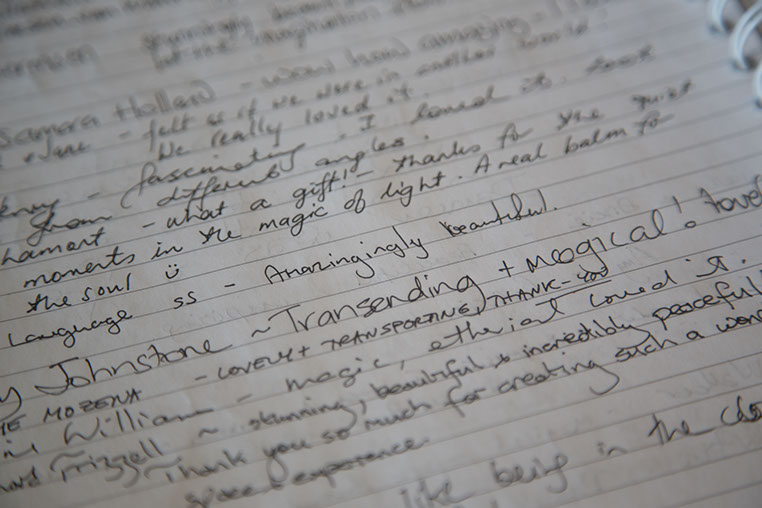 stunningly beautiful
of the imagination
Samara Holland - wow how amazing -
felt as if we were in another world.
We really loved it.
- fascinating - I loved it. took
from different angles.
Lamont - what a gift! - thanks for the quiet
moments in the magic of light. A real balm for
the soul ☺
Language ss - Amazingingly beautiful.
y Johnstone ~ Transending + magical! Love
IE MOZENA - LOVELY + TRANSPORTING, THANK-YOU
William - magic, etherial loved it.
hard Frizzell ~ stunning, beautiful & incredibly peaceful
Thank you so much for creating such a
space & experience.
like being in the